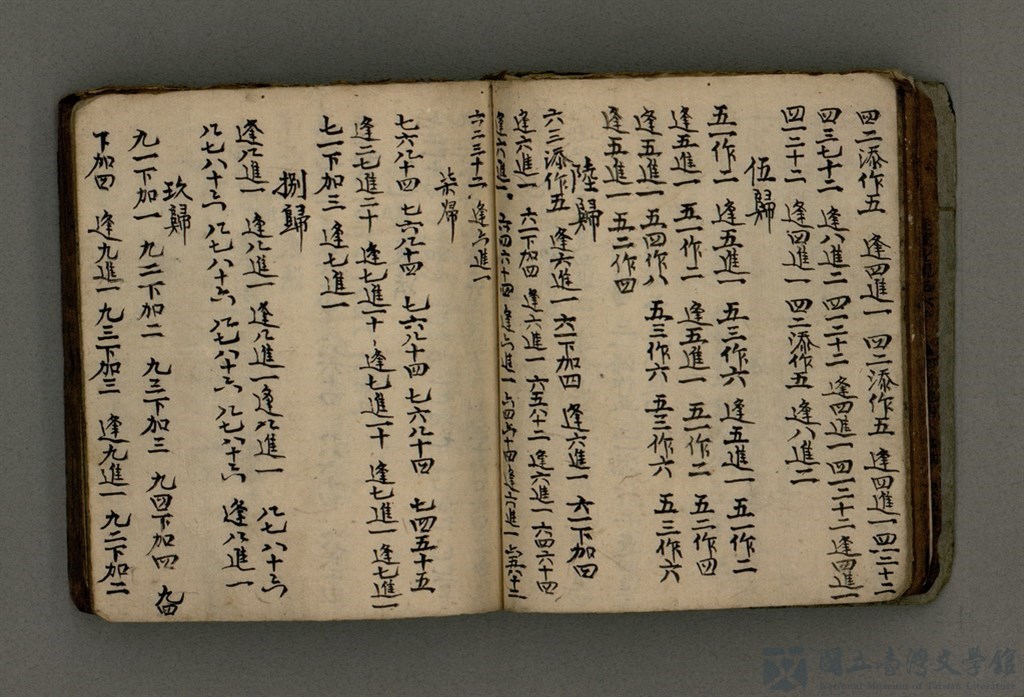 四二添作五 逢四進一 四二添作五 逢四進一 四一二十二
四三七十二 逢八進二 四一二十二 逢四進一 四一二十二 逢四進一
四一二十二 逢四進一 四二添作五 逢八進二
伍歸
五一作二 逢五進一 五三作六 逢五進一 五一作二
逢五進一 五一作二 逢五進一 五一作二 五二作四
逢五進一 五四作八 五三作六 五三作六 五三作六
逢五進一 五二作四
陸歸
六三添作五 逢六進一 六一下加四 逢六進一 六一下加四
逢六進一 六一下加四 逢六進一 六五八十二 逢六進一 六四六十四
逢六進一 六四六十四 逢六進一 六四六十四 逢六進一 六五八十二
六二三十二 逢六進一
柒歸
七六八十四 七六八十四 七六八十四 七六八十四 七四五十五
逢二七進二十 逢七進一十 逢七進一十 逢七進一 逢七進一
七一下加三 逢七進一
捌歸
逢八進一 逢八進一 逢八進一 逢八進一 八七八十六
八七八十六 八七八十六 八七八十六 八七八十六 逢八進一
玖歸
九一下加一 九二下加二 九三下加三 九四下加四 九四
下加四 逢九進一 九三下加三 逢九進一 九二下加二
國立臺灣文學館
National Museum of Taiwan Literature